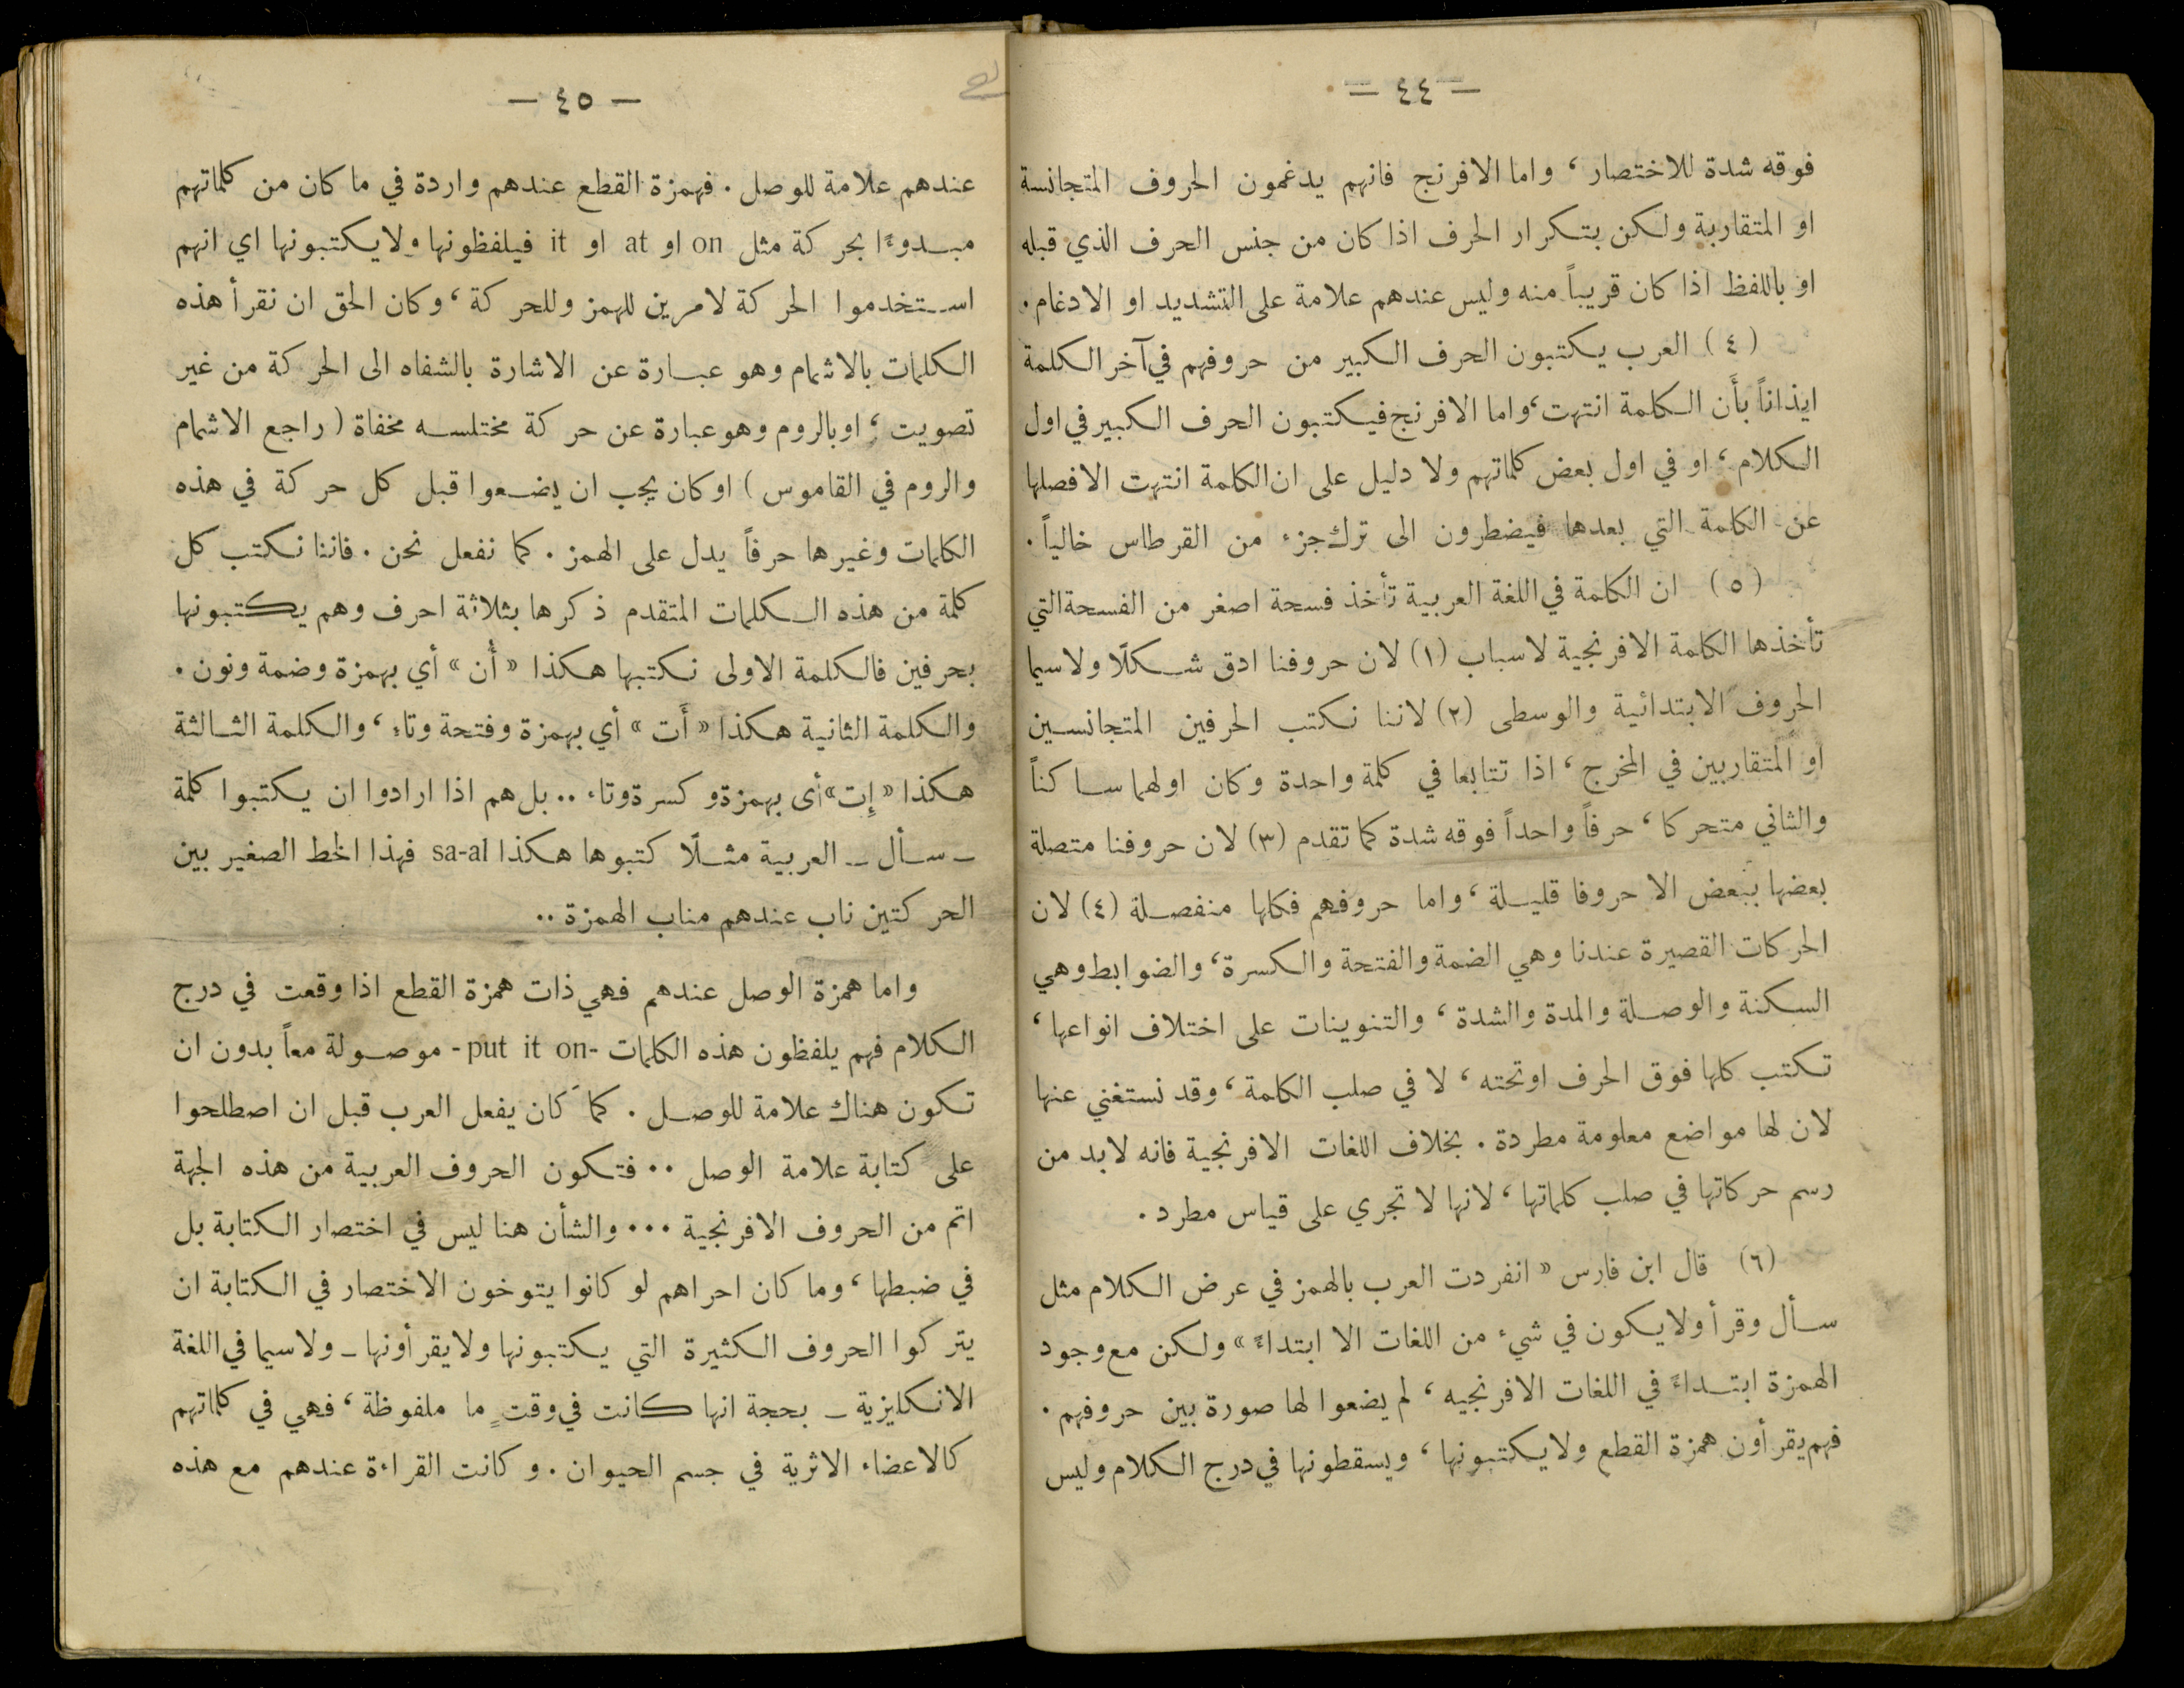 — ٤٤ —
فوقه شدة للاختصار، واما الافرنج فانهم يدغمون الحروف المتجانسة
او المتقاربة ولكن بتكرار الحرف اذا كان من جنس الحرف الذي قبله
او باللفظ اذا كان قريباً منه وليس عندهم علامة على التشديد او الادغام.
(٤) العرب يكتبون الحرف الكبير من حروفهم في آخر الكلمة
ايذاناً بأَن الكلمة انتهت، واما الافرنج فيكتبون الحرف الكبير في اول
الكلام، او في اول بعض كلماتهم ولا دليل على ان الكلمة انتهت الا فصلها
عن الكلمة التي بعدها فيضطرون الى ترك جزء من القرطاس خالياً.
(٥) ان الكلمة في اللغة العربية تأخذ فسحة اصغر من الفسحة التي
تأخذها الكلمة الافرنجية لاسباب (١) لان حروفنا ادق شكلًا ولا سيما
الحروف الابتدائية والوسطى (٢) لاننا نكتب الحرفين المتجانسين
او المتقاربين في المخرج، اذا تتابعا في كلمة واحدة وكان اولهما ساكناً
والثاني متحركا، حرفاً واحداً فوقه شدة كما تقدم (٣) لان حروفنا متصلة
بعضها ببعض الا حروفا قليلة، واما حروفهم فكلها منفصلة (٤) لان
الحركات القصيرة عندنا وهي الضمة والفتحة والكسرة، والضوابط وهي
السكنة والوصلة والمدة والشدة، والتنوينات على اختلاف انواعها،
تكتب كلها فوق الحرف او تحته، لا في صلب الكلمة، وقد نستغني عنها
لان لها مواضع معلومة مطردة. بخلاف اللغات الافرنجية فانه لا بد من
رسم حركاتها في صلب كلماتها، لانها لا تجري على قياس مطرد.
(٦) قال ابن فارس « انفردت العرب بالهمز في عرض الكلام مثل
سأل وقرأ ولا يكون في شيء من اللغات الا ابتداءً » ولكن مع وجود
الهمزة ابتداءً في اللغات الافرنجيه، لم يضعوا لها صورة بين حروفهم.
فهم يقرأون همزة القطع ولا يكتبونها، ويسقطونها في درج الكلام وليس
— ٤٥ —
عندهم علامة للوصل. فهمزة القطع عندهم واردة في ما كان من كلماتهم
مبدوءًا بحركة مثل on او at او it فيلفظونها ولا يكتبونها اي انهم
استخدموا الحركة لامرين للهمز وللحركة، وكان الحق ان نقرأ هذه
الكلمات بالاشمام وهو عبارة عن الاشارة بالشفاه الى الحركة من غير
تصويت، او بالروم وهو عبارة عن حركة مختلسه مخفاة ( راجع الاشمام
والروم في القاموس ) او كان يجب ان يضعوا قبل كل حركة في هذه
الكلمات وغيرها حرفاً يدل على الهمز. كما نفعل نحن. فاننا نكتب كل
كلمة من هذه الكلمات المتقدم ذكرها بثلاثة احرف وهم يكتبونها
بحرفين فالكلمة الاولى نكتبها هكذا « أُن » أي بهمزة وضمة ونون.
والكلمة الثانية هكذا « أَت » أي بهمزة وفتحة وتاءٍ، والكلمة الثالثة
هكذا « إِت» أى بهمزة وكسرة وتاء .. بل هم اذا ارادوا ان يكتبوا كلمة
ـ سأل ـ العربية مثلًا كتبوها هكذا sa-al فهذا الخط الصغير بين
الحركتين ناب عندهم مناب الهمزة ..
واما همزة الوصل عندهم فهي ذات همزة القطع اذا وقعت في درج
الكلام فهم يلفظون هذه الكلمات -put it on- موصولة معاً بدون ان
تكون هناك علامة للوصل. كما كان يفعل العرب قبل ان اصطلحوا
على كتابة علامة الوصل .. فتكون الحروف العربية من هذه الجهة
اتم من الحروف الافرنجية ... والشأن هنا ليس في اختصار الكتابة بل
في ضبطها، وما كان احراهم لو كانوا يتوخون الاختصار في الكتابة ان
يتركوا الحروف الكثيرة التي يكتبونها ولا يقرأونها ـ ولا سيما في اللغة
الانكليزية ـ بحجة انها كانت في وقتٍ ما ملفوظة، فهي في كلماتهم
كالاعضاء الاثرية في جسم الحيوان. وكانت القراءة عندهم مع هذه